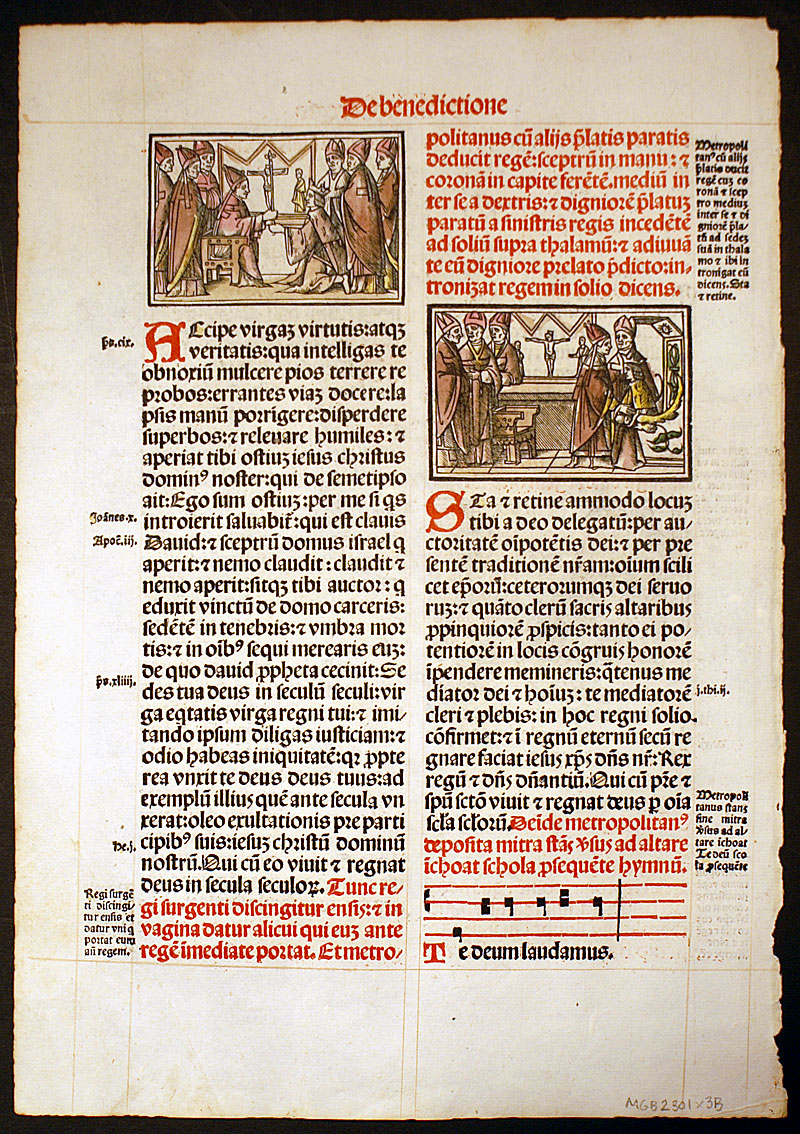 De benedictione
ps. cix.
ACcipe virgaʒ virtutis: atqʒ
veritatis: qua intelligas te
obnoxiū mulcere pios terrere re
probos: errantes viaʒ docere: la
psis manū porrigere: disperdere
superbos: ⁊ releuare humiles: ⁊
aperiat tibi ostiuʒ iesus christus
dominꝰ noster: qui de semetipso
ait: Ego sum ostiuʒ: per me si qs
Joānes. x.
introierit saluabit̄: qui est clauis
Apoc̄. iij.
Dauid: ⁊ sceptrū domus israel q
aperit: ⁊ nemo claudit: claudit ⁊
nemo aperit: sitqʒ tibi auctor: q
eduxit vinctū de domo carceris:
sedētē in tenebris: ⁊ vmbra mor
tis: ⁊ in oībꝰ sequi merearis euʒ:
de quo dauid ꝓpheta cecinit: Se
ps. xliiij.
des tua deus in seculū seculi: vir
ga eqtatis virga regni tui: ⁊ imi/
tando ipsum diligas iusticiam: ⁊
odio habeas iniquitatē: qꝛ ꝓpte
rea vnxit te deus deus tuus: ad
exemplū illius quē ante secula vn
xerat: oleo exultationis pre parti
He. j.
cipibꝰ suis: iesuʒ christū dominū
nostrū. Qui cū eo viuit ⁊ regnat
deus in secula seculoꝝ. Tunc re/
Regi surgē
ti discingi
tur ensis et
datur vni q
portat eum
añ regem.
gi surgenti discingitur ensis: ⁊ in
vagina datur alicui qui euʒ ante
regē īmediate portat. Et metro/
politanus cū alijs p̄latis paratis
deducit regē: sceptrū in manu: ⁊
coronā in capite ferētē. mediū in
ter se a dextris: ⁊ digniorē p̄latuʒ
paratū a sinistris regis incedētē
ad soliū supra thalamū: ⁊ adiuuā
te eū digniore prelato p̄dicto: in/
tronizat regem in solio dicens.
Metropoli
tanꝰ cū alijs
p̄latis ducit
regē cuʒ co
ronā ⁊ scep
tro mediuʒ
inter se ⁊ di
gniorē p̄la/
tū ad sedeʒ
suā in thala
mo ⁊ ibi in
tronigat eū
dicens. Sta
⁊ retine.
STa ⁊ retine ammodo locuʒ
tibi a deo delegatū: per au/
ctoritatē oīpotētis dei: ⁊ per pre
sentē traditionē nr̄am: oium scili
cet ep̄oꝝ: ceterorumqʒ dei seruo
ruʒ: ⁊ quāto clerū sacris altaribus
ꝓpinquiorē ꝓspicis: tanto ei po/
tentiorē in locis cōgruis honorē
īpendere memineris: qͣtenus me
diator dei ⁊ hoīuʒ: te mediatorē
j. thi. ij.
cleri ⁊ plebis: in hoc regni solio.
cōfirmet: ⁊ ī regnū eternū secū re
gnare faciat iesus xp̄s dn̄s nr̄: Rex
regū ⁊ dn̄s dn̄antiū. Qui cū pr̄e ⁊
spū sctō viuit ⁊ regnat deus ꝑ oīa
scl̄a scl̄orū. Deīde metropolitanꝰ
deposita mitra stās v̄sus ad altare
īchoat schola ꝓsequēte hymnū.
Metropoli
tanus stans
sine mitra
v̄sus ad al/
tare īchoat
Te deū sco
la ꝓsequēte
Te deum laudamus.
MGB2301x3B